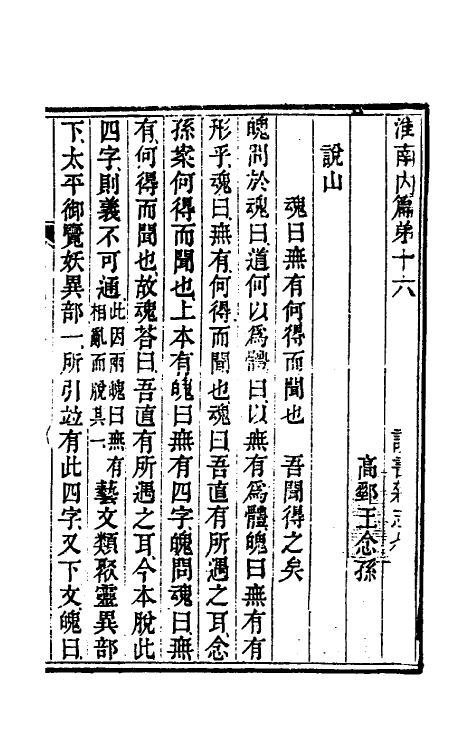 淮南内篇弟十六　　讀書雜志九
高郵王念孫
說山
魂曰無有何得而聞也　吾聞得之矣
魄問於魂曰道何以爲體曰以無有爲體魄曰無有有
形乎魂曰無有何得而聞也魂曰吾直有所遇之耳念
孫案何得而聞也上本有魄曰無有四字魄問魂曰無
有何得而聞也故魂荅曰吾直有所遇之耳今本脫此
四字則義不可通此因兩魄曰無有相亂而脫其一藝文類聚靈異部
下太平御覽妖異部一所引竝有此四字又下文魄曰